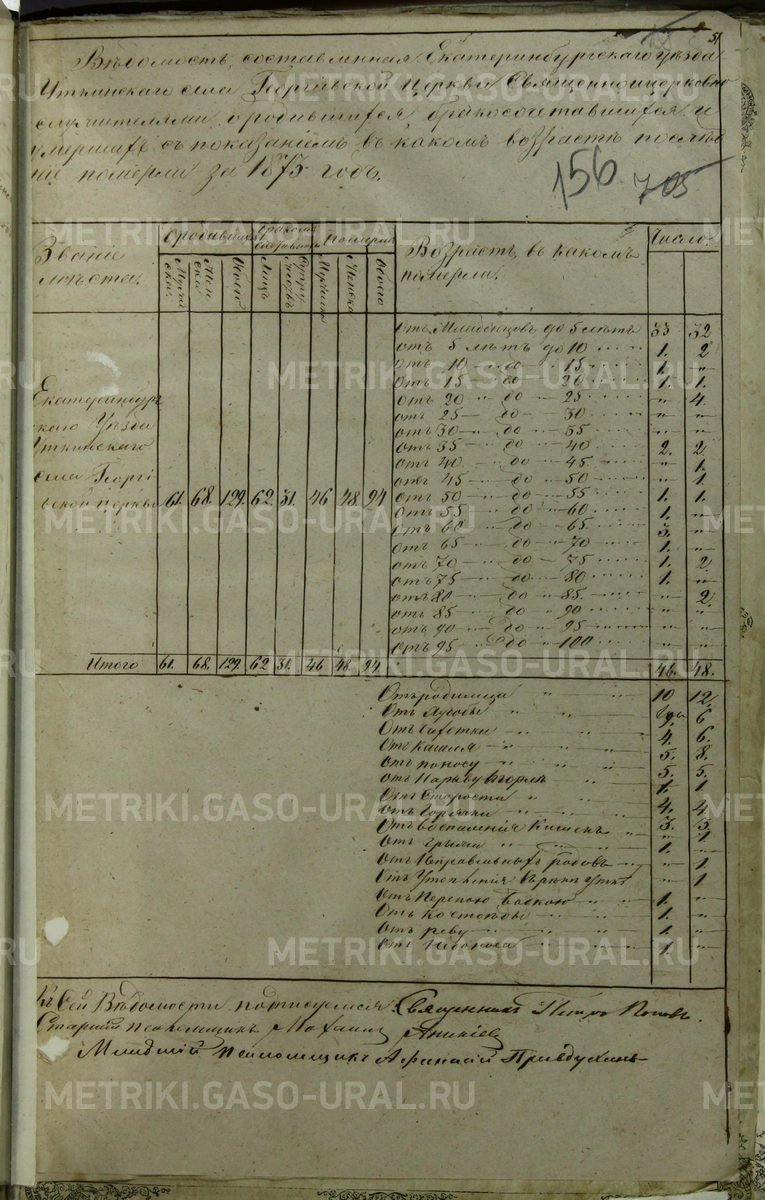 Вѣдомость, составленная Екатеринбургскаго уѣзда
Уткинскаго села Георгіевской церкви Священноцерковно
служителями, о родившихся, бракосочетавшихся и
умершихъ съ показаніемъ въ какомъ возрастѣ послѣд
ніе померли за 1875 годъ.
156 705
Званіе мѣста.
О родившихся
Мужеска. Женска. Обоего
Бракомъ
Лицъ Супружествъ
Померш.
Мужеска Женска Обоего
Возрастъ, въ какомъ померли.
Число.
Отъ Младенцовъ до 5 лѣтъ 33 32
отъ 5 лѣтъ до 10 1. 2
отъ 10 до 15 1. "
отъ 15 до 20 1. 1.
отъ 20 до 25 " 4.
отъ 25 до 30 " "
отъ 30 до 35 " "
отъ 35 до 40 2. 2
отъ 40 до 45 " 1.
отъ 45 до 50 " 1
отъ 50 до 55 1. 1.
отъ 55 до 60 1. "
отъ 60 до 65 3. "
отъ 65 до 70 1. "
отъ 70 до 75 1. 2
отъ 75 до 80 1. "
отъ 80 до 85 " 2.
отъ 85 до 90 " "
отъ 90 до 95 " "
отъ 95 до 100 " "
Екатеринбур
скаго Уѣзда
Уткинскаго
села Георгі
вской церкви 61. 68. 129. 62. 31. 46 48. 94
Итого 61. 68. 129. 62 31. 46 48. 94. 46. 48.
Отъ родимца 10 12
6
Отъ Чахотки 4. 6.
Отъ кашля 5. 8.
отъ поносу 5. 5.
1. 1
Отъ Старости
Отъ Горячки 4. 4
Отъ воспаленія Кишекъ 3. 3.
Отъ грыжи 1. "
Отъ неправильныхъ родовъ " 1
Отъ Утопленія въ рѣкѣ Уткѣ " 1.
Отъ 1. "
Отъ костоѣды 1. "
Отъ реву 1. "
Отъ 1. "
Къ Сей Вѣдомости подписуемся: Священникъ Петръ Поповъ.
Старшій псаломщикъ Михаилъ Аникіевъ
Младшій псаломщикъ Афанасій Правдухинъ
METRIKI.GASO-URAL.RU